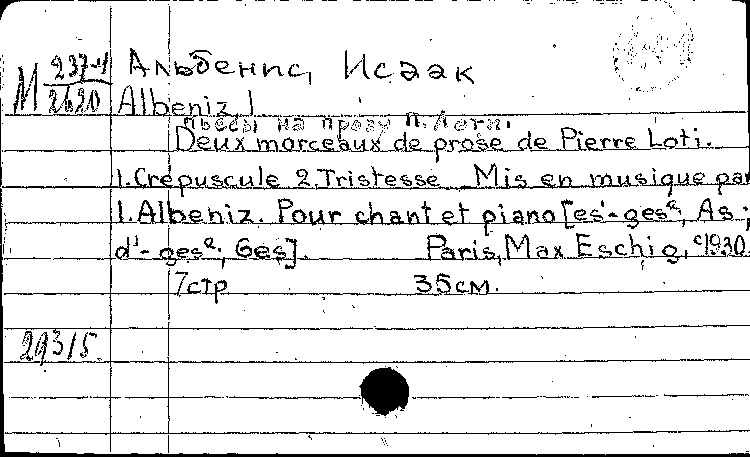 М 237-4 Альбенис, Исаак
2620 Albeniz I
пьесы на прозу П. Лоти.
Deux morceaux de prose de Pierre Loti.
1. Crepuscule 2. Tristesse Mis en musique par
I. Albeniz. Pour chant et piano [es¹-ges²; As;
d¹-ges²; Ges]. Paris, Max Eschig, c1930.
7стр 35см.
29315.